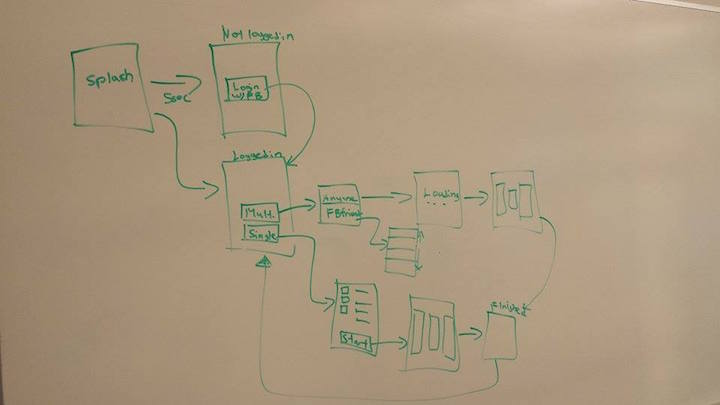 Splash
5sec
Not loggedin
Login
w/FB
Loggedin
Mult.
Single
Anyone
FBfriend
Loading
...
Start
Finished